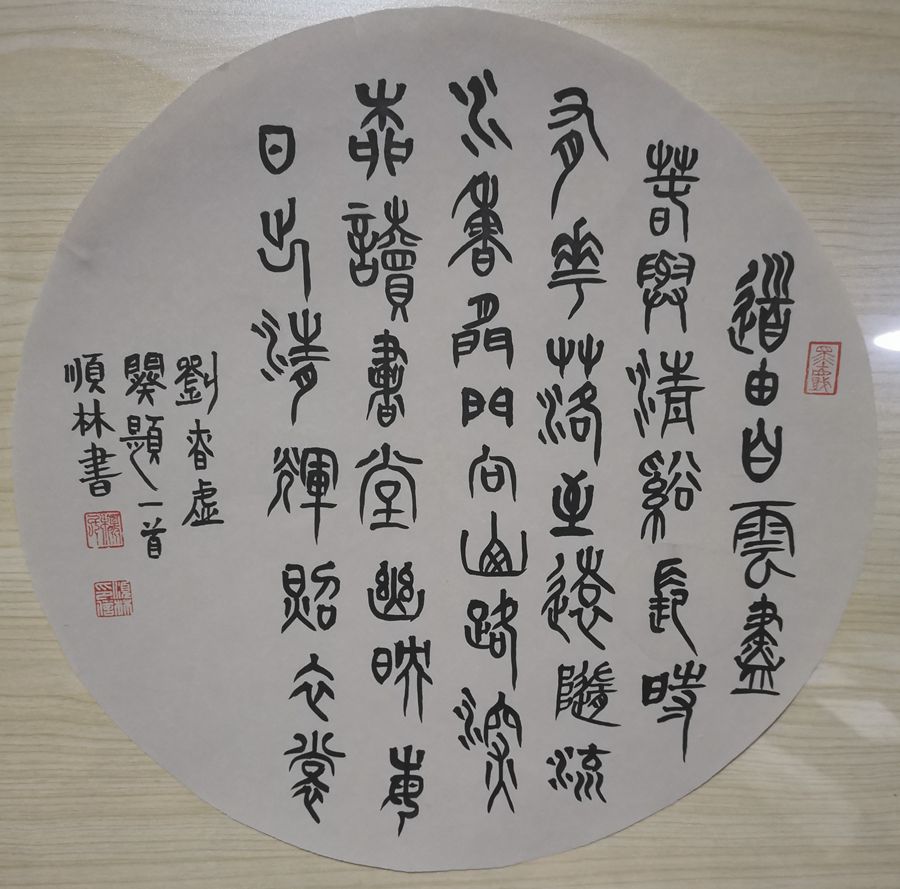 道由白雲盡
春與清谿長時
有華落至遠隨流
水香閒門向山路深
柳讀書堂幽映每
日清輝照衣裳
劉昚虛
闋題一首
順林書
墨戲
順林印信